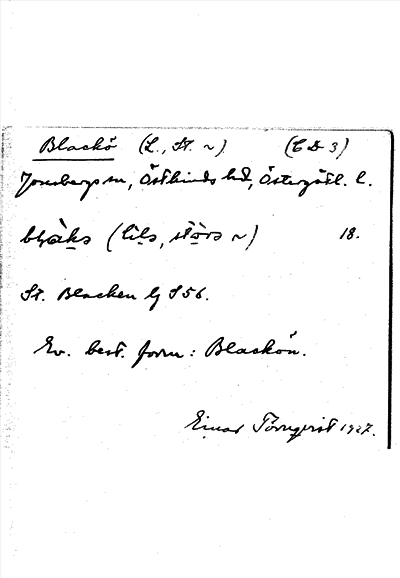 Blackö (L., St. ~) (C D 3)
Jonsbergs sn, Östkinds hd, Östergötl. l.
(lils, störs ~) 18.
St. Blacken Gj S 56.
Ev. best. form: Blackön.
Einar Törnqvist 1927.